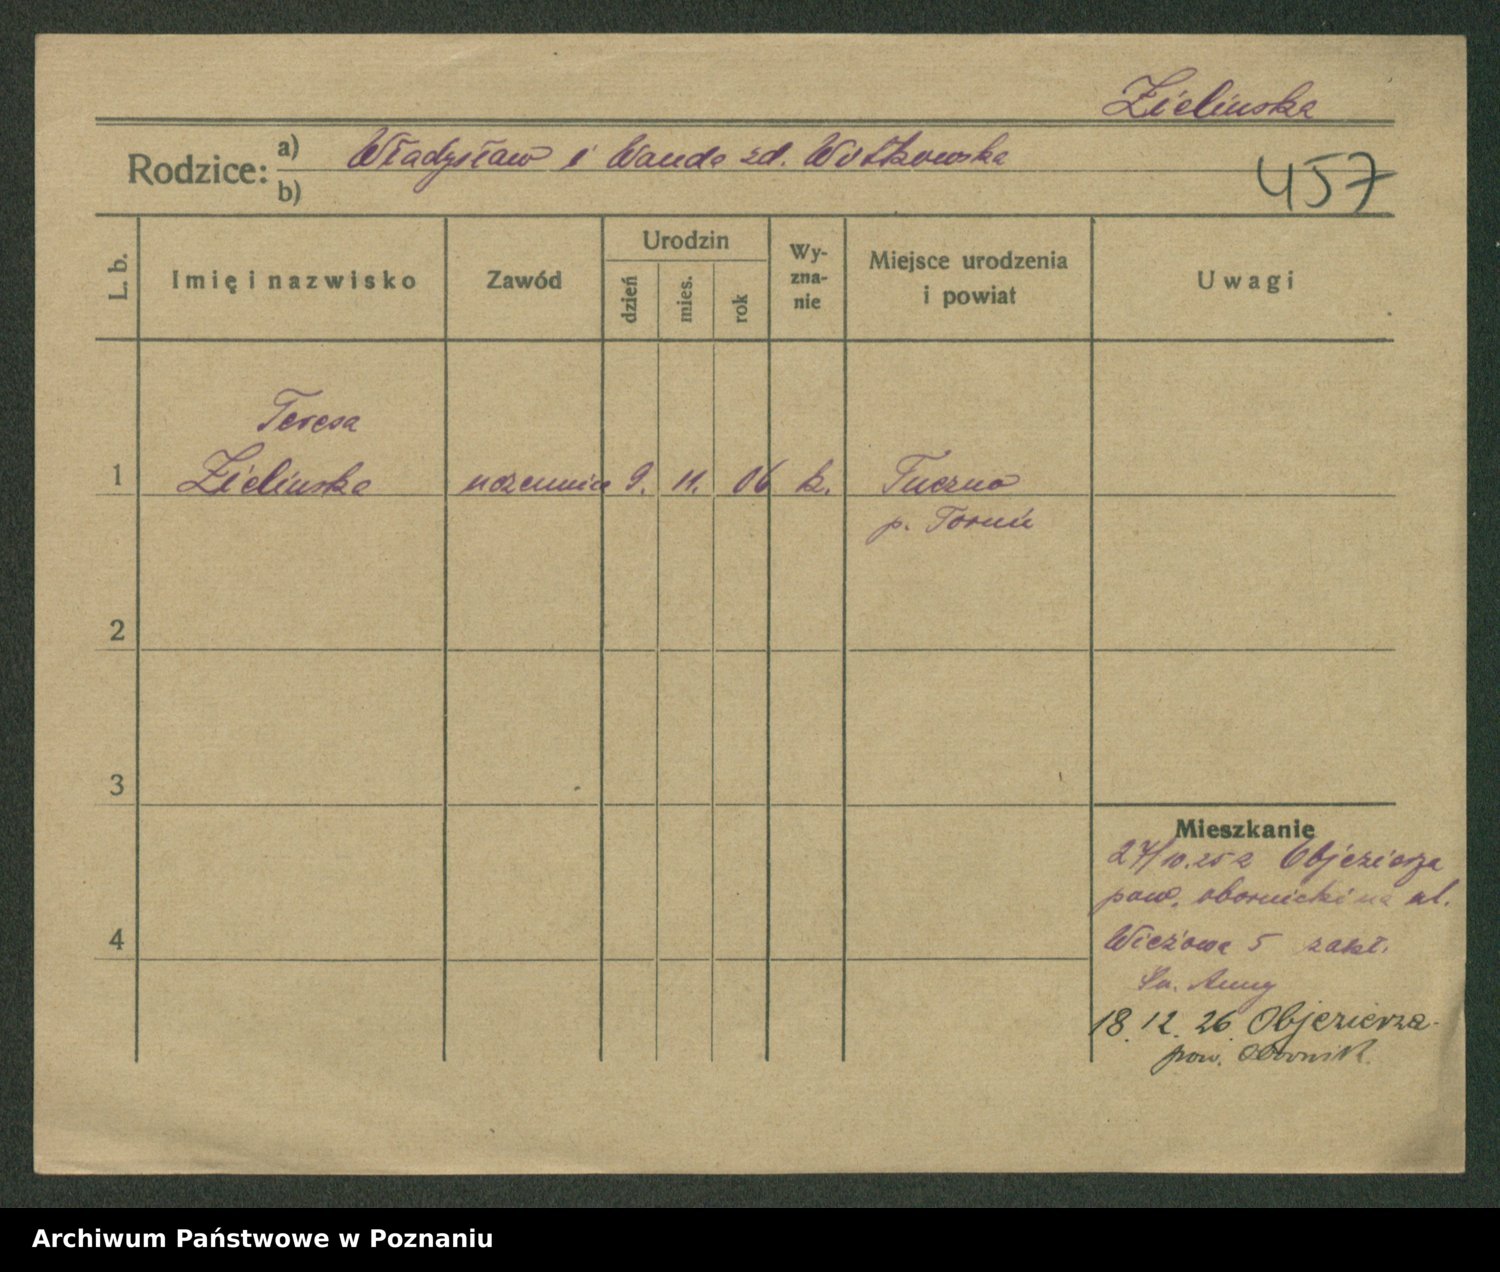 Zielinska
Rodzice: a) Władysław i Wanda zd. Wutkowska
b)
457
L. b.
Imię i nazwisko
Zawód
Urodzin
dzień
mies.
rok
Wy-
zna-
nie
Miejsce urodzenia
i powiat
Uwagi
Teresa
1 Zielinska uczennica 9. 11. 06 k. Tuczno
p. Toruń
2
3
4
Mieszkanie
27/10.25 z Objezierza
pow. obornicki na ul.
Wieżowa 5 zakł.
Św. Anny
18.12.26 Objezierza
pow. Obornik.
Archiwum Państwowe w Poznaniu